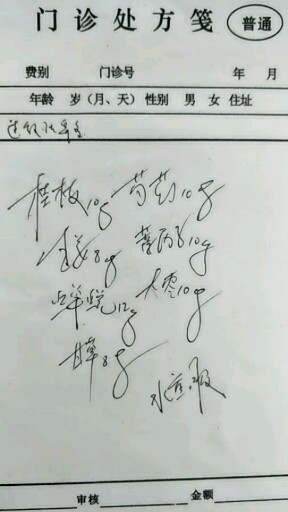 门诊处方笺 普通
费别 门诊号 年 月
年龄 岁(月、天) 性别 男 女 住址
桂枝10g 芍药10g
生姜8g 10g
12g 大枣10g
甘草8g
水煎服
审核 金额